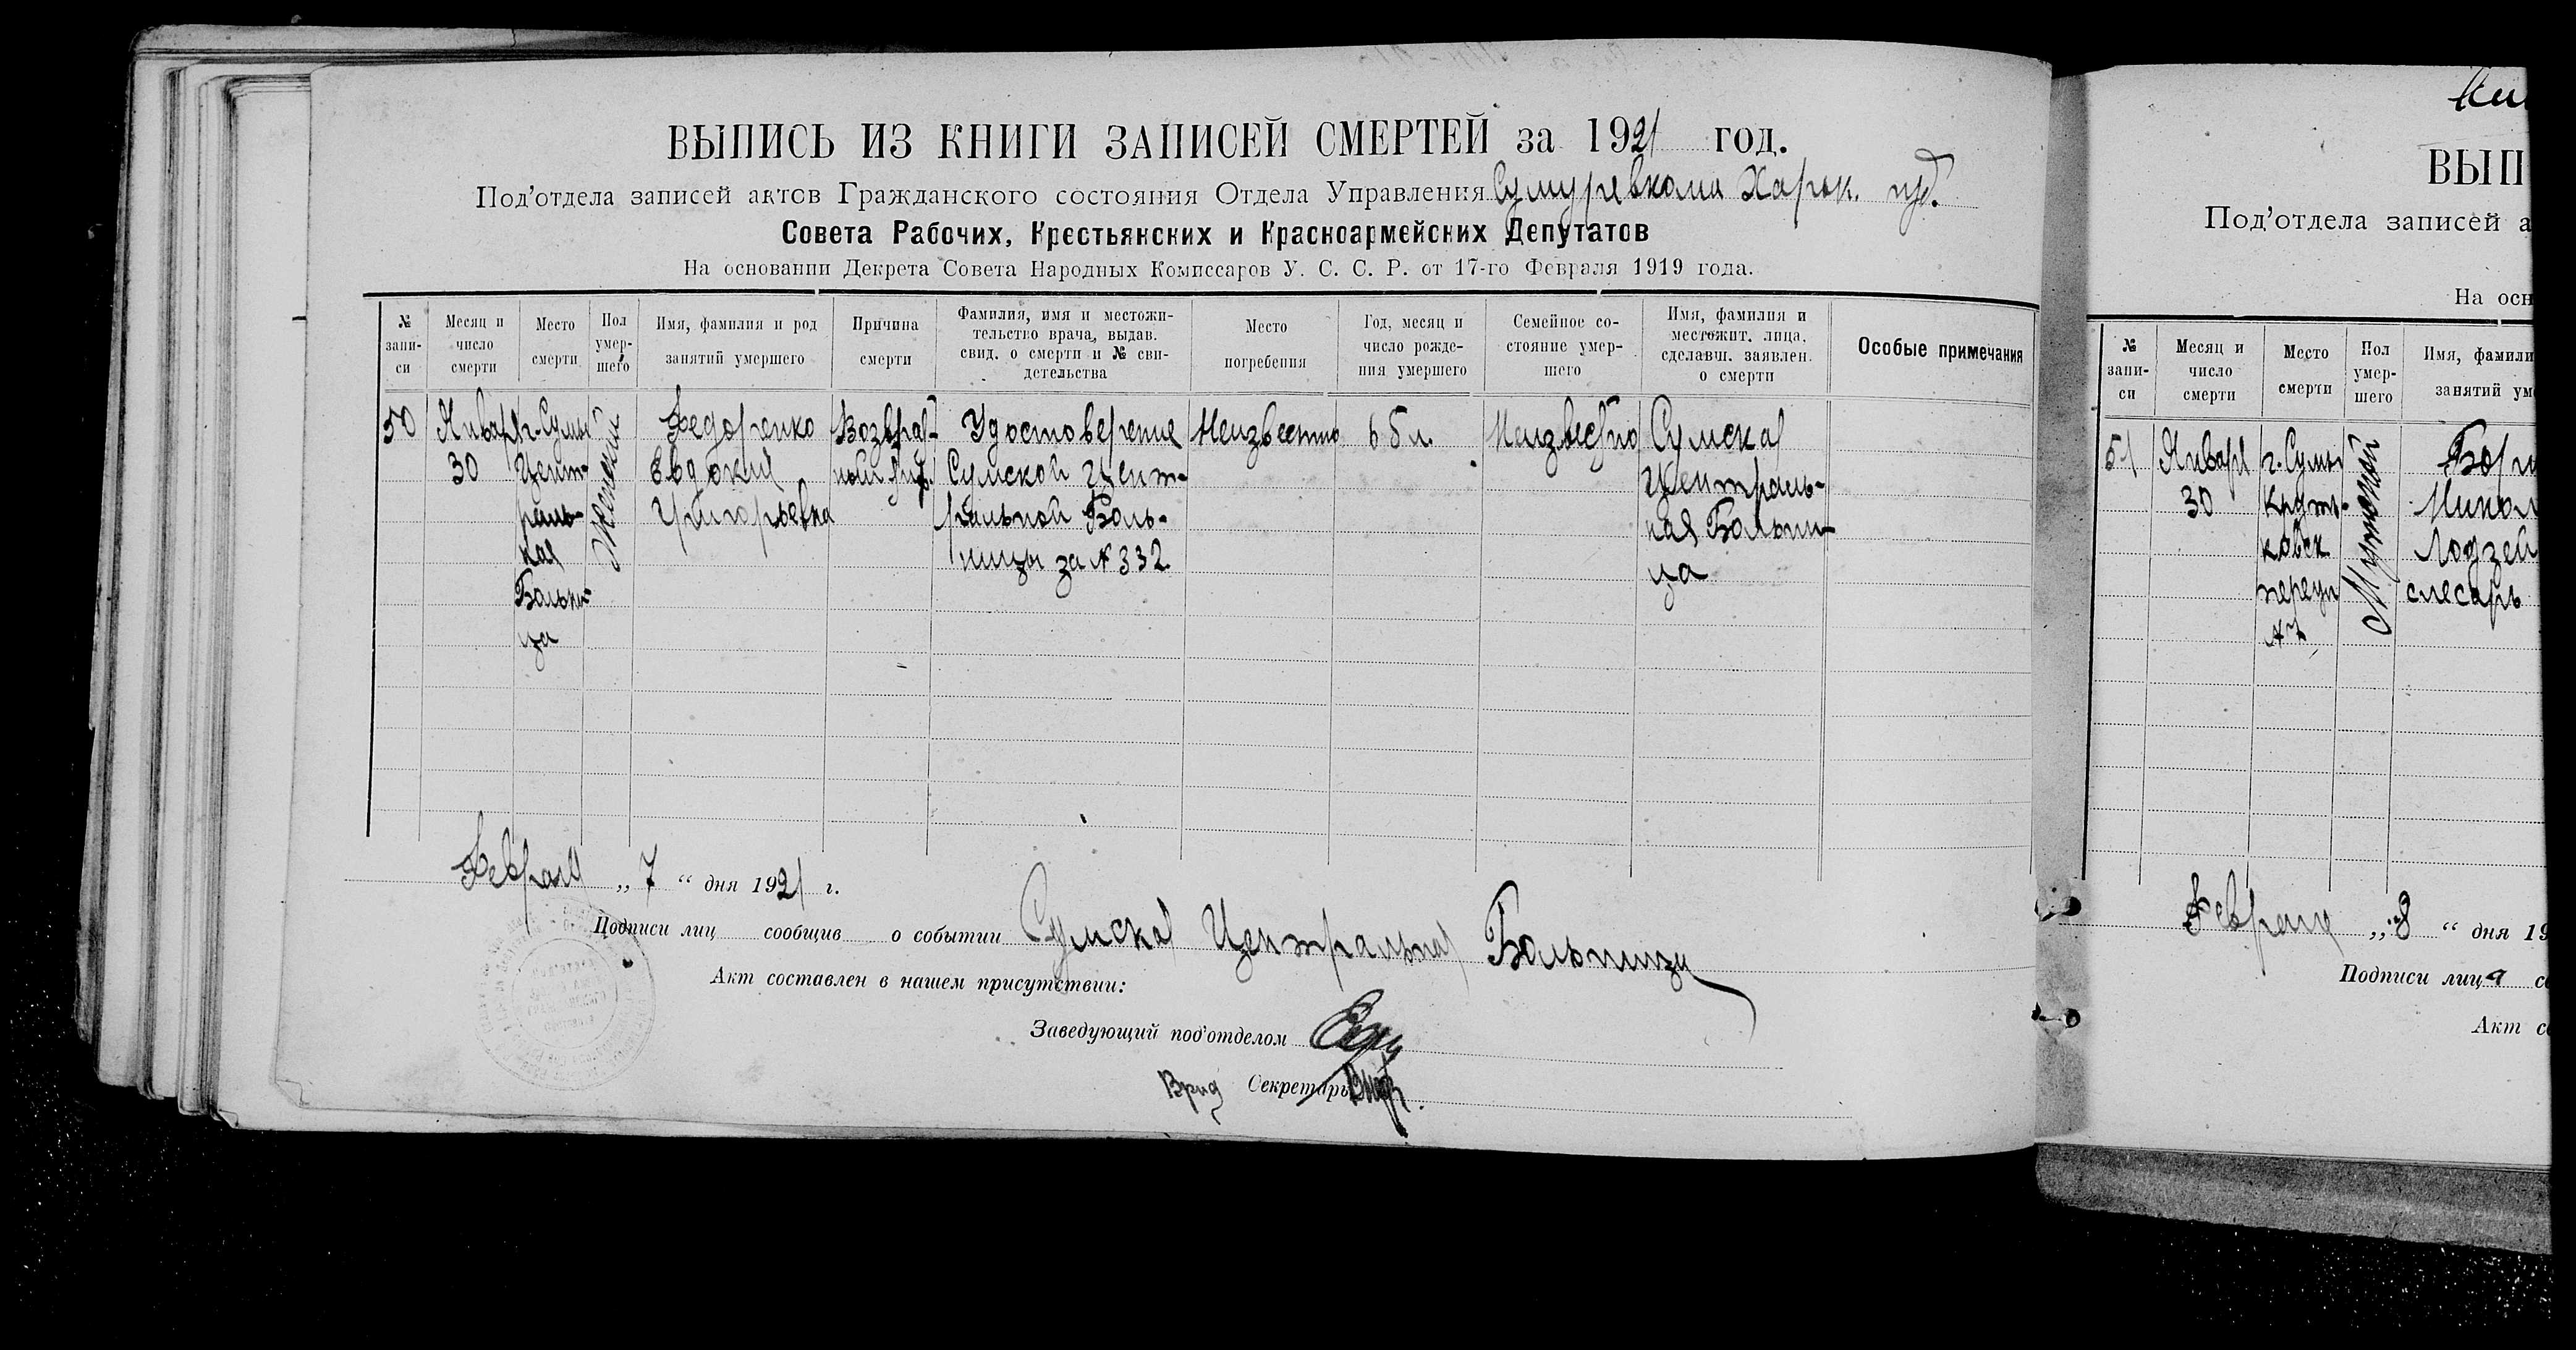 ВЫПИСЬ ИЗ КНИГИ ЗАПИСЕЙ СМЕРТЕЙ за 1921 год.
Под'отдела записей актов Гражданского состояния Отдела Управления Сумуревкома Харьк. губ.
Совета Рабочих, Крестьянских и Красноармейских Депутатов
На основании Декрета Совета Народных Комиссаров У. С. С. Р. от 17-го Февраля 1919 года.
№ запи-
си
Месяц и
число
смерти
Место
смерти
Пол
умер-
шего
Имя, фамилия и род
занятий умершего
Причина
смерти
Фамилия, имя и местожи-
тельство врача, выдав.
свид. о смерти и № сви-
детельства
Место
погребения
Год, месяц и
число рожде-
ния умершего
Семейное со-
стояние умер-
шего
Имя, фамилия и
местожит. лица,
сделавш. заявлен.
о смерти
Особые примечания
50
Января
30
г. Сумы
Цент-
раль-
ная
Больни-
ца
Женский
Федоренко
Евдокия
Григорьевна
Возврат-
ный тиф.
Удостоверение
Сумской Цент-
ральной Боль-
ницы за № 332
Неизвестно
65 л.
Неизвестно
Сумская
Централь-
ная Больни-
ца
Февраля „ 7 “ дня 1921 г.
Подписи лиц сообщив о событии Сумская Центральная Больница
Акт составлен в нашем присутствии:
Заведующий под'отделом
Врид Секретарь
ВЫП
Под'отдела записей а
На осн
№
запи-
си
Месяц и
число
смерти
Место
смерти
Пол
умер-
шего
Имя, фамили
занятий ум
51
Января
30
г. Сумы
переул
№ 7
Мужской
Никол
слесарь
Февраля „ 8 “ дня 19
Подписи лица с
Акт с